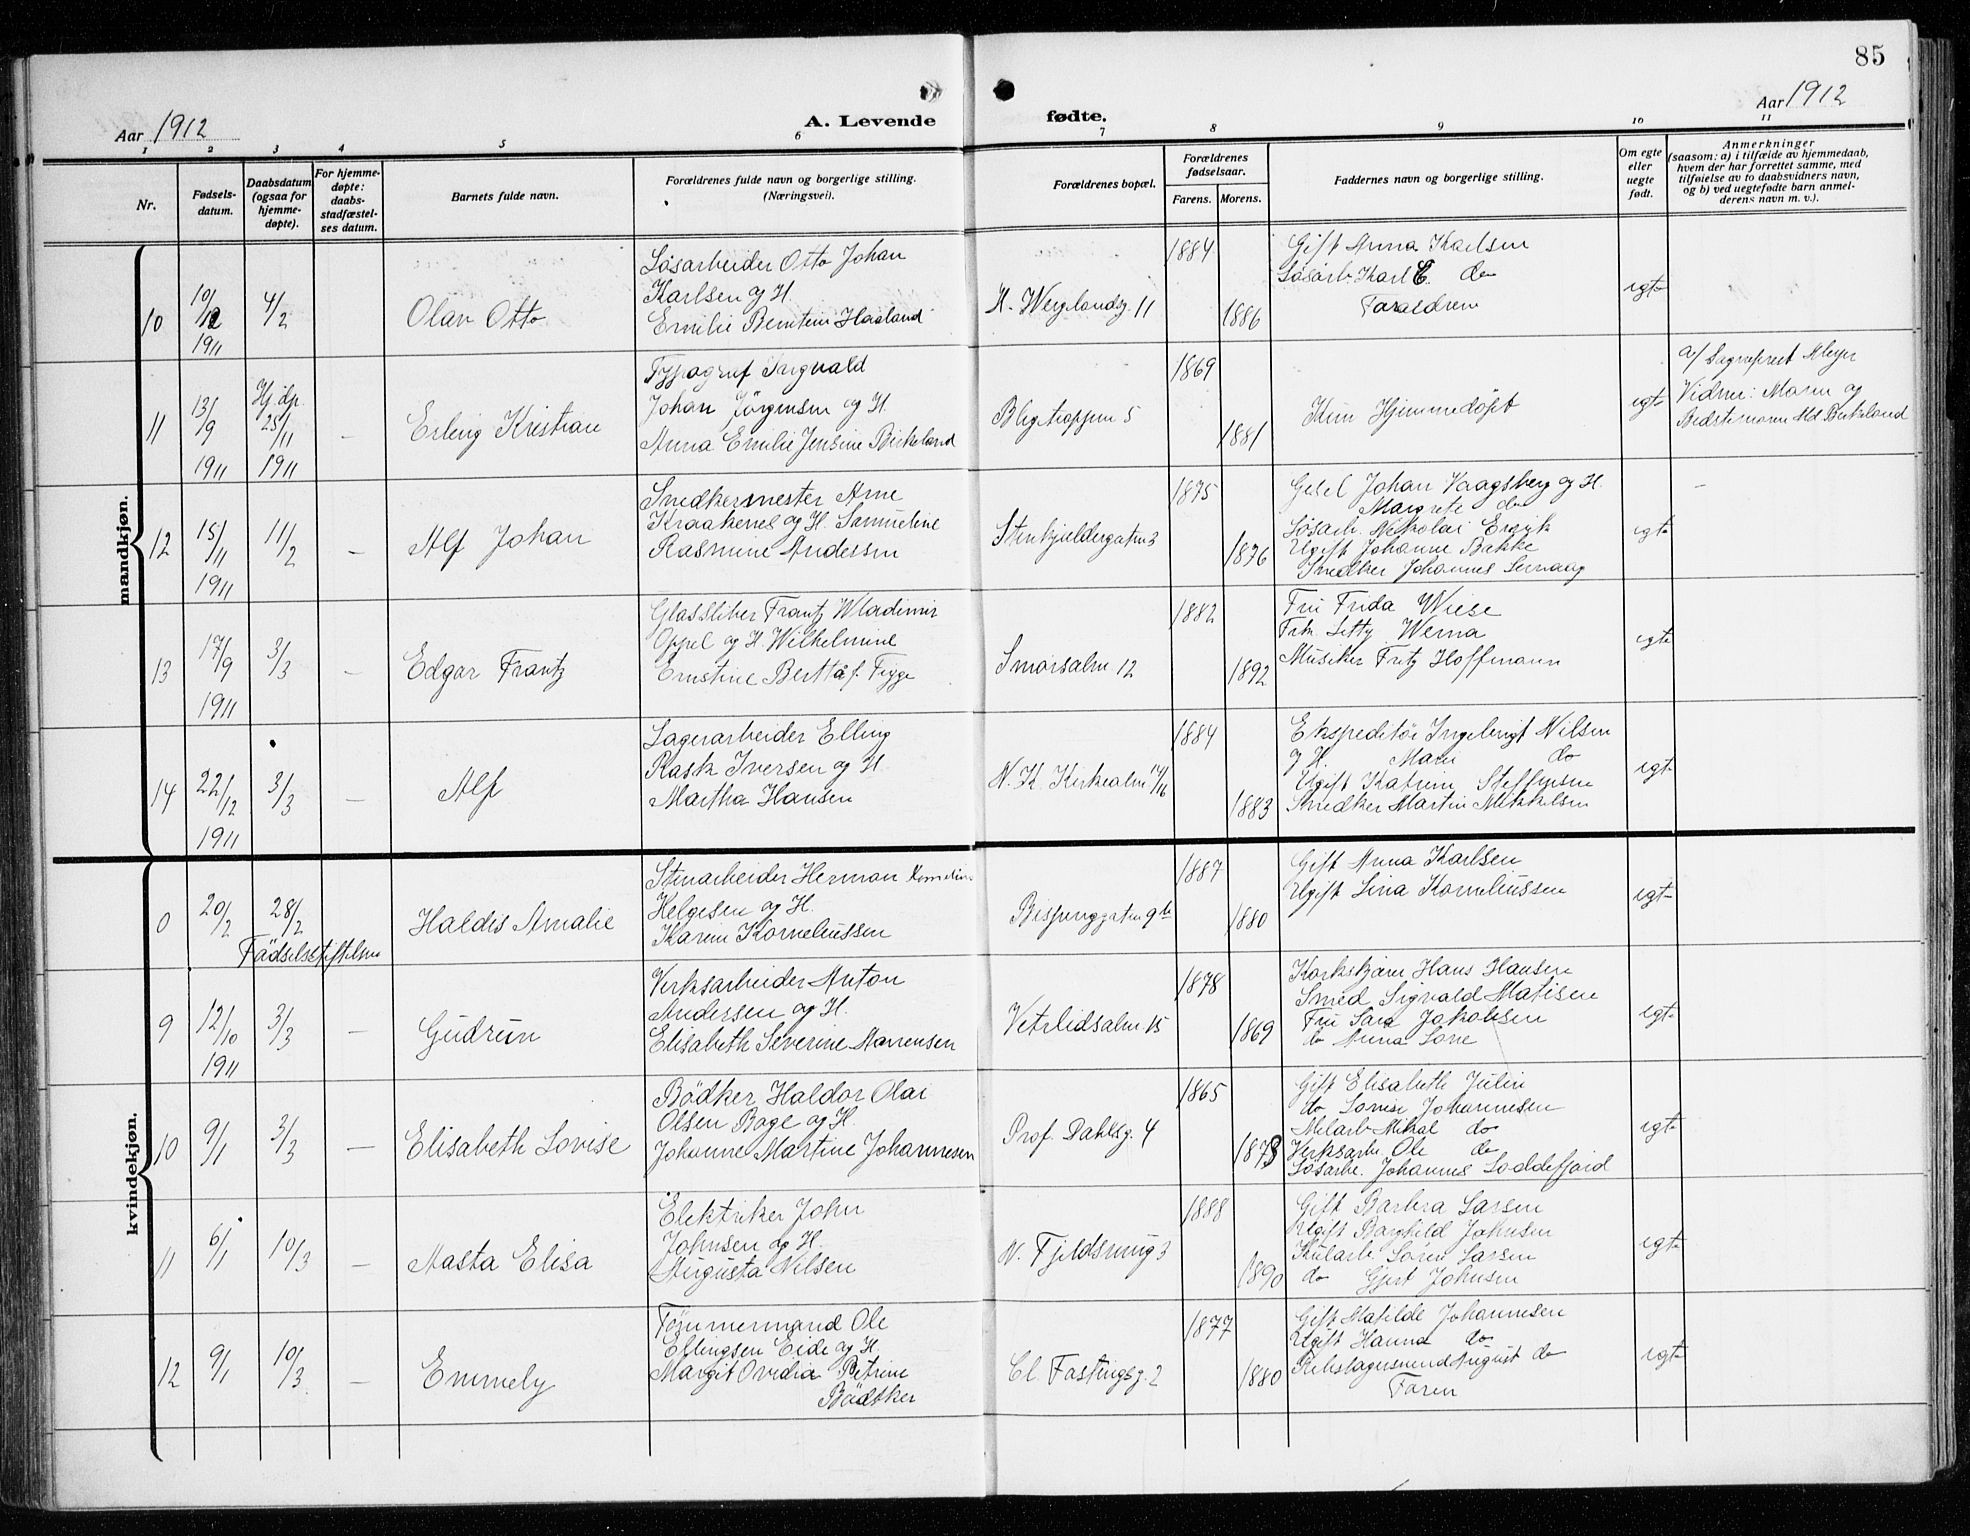 85
Aar 1912
A. Levende
fødte.
Aar 1912
1 2 3 4 5 6 7 8 9 10 11
Nr.
Fødsels-
datum.
Daabsdatum
(ogsaa for
hjemme-
døpte).
For hjemme-
døpte:
daabs-
stadfæstel-
ses datum.
Barnets fulde navn.
Forældrenes fulde navn og borgerlige stilling.
(Næringsvei).
Forældrenes bopæl.
Forældrenes
fødselsaar.
Farens. Morens.
Faddernes navn og borgerlige stilling.
Om egte
eller
uegte
født.
Anmerkninger
(saasom: a) i tilfælde av hjemmedaab,
hvem der har forrettet samme, med
tilføielse av to daabsvidners navn,
og b) ved uegtefødte barn anmel-
derens navn m. v.).
mandkjøn.
10
10/12
1911
4/2
Olav Otto
Løsarbeider Otto Johan
Karlsen og H.
Emilie Berntein Haaland
H. Wergelandsg. 11
1884
1886
Gift Anna Karlsen
Løsarb. Karl C. do
Foraeldrene
egte
11
13/9
1911
Hj. dp.
25/11
1911
–
Erling Kristian
Typograf Sigvald
Johan Jørgensen og H.
Anna Emilie Jensine Birkeland
Blegetrappen 5
1869
1881
Kun Hjemmedøpt
egte
a/ Sogneprest Meyer
Vidner: Moren og
Bedstemoren Md Birkeland
12
15/11
1911
11/2
–
Alf Johan
Snedkermester Arne
Kraakenes og H. Samueline
Rasmine Andersen
Stenkjeldergaten 3
1875
1876
Gesel Johan Vaagsberg og H.
Margrete do
Løsarb. Nikolai Ervik
Ugift Johanne Bakke
Snedker Johannes
egte
–
13
17/9
1911
3/3
–
Edgar Frantz
Glassliber Frantz Wladimir
Oppel og H. Wilhelmine
Ernstine Berta f. Figge
Smørsalm 12
1882
1892
Fru Frida Wiese
Frk. Letty Werna
Musiker Fritz Hoffmann
egte
14
22/12
1911
3/3
–
Alf
Lagerarbeider Elling
Rask Iversen og H.
Martha Hansen
N. K. Kirkealm 14/16
1884
1883
Ekspeditør Ingebrigt Nilsen
og H. Mari do
Ugift Katrine Steffensen
Snedker Martin Mikkelsen
egte
kvindekjøn.
0
20/2
28/2
Fødselsstiftelsen
Haldis Amalie
Stenarbeider Herman Kornelius
Helgesen og H.
Karen Korneliussen
Bispenggaten 9b
1887
1880
Gift Anna Karlsen
Ugift Lina Korneliussen
egte
9
12/10
1911
3/3
–
Gudrun
Verksarbeider Anton
Andersen og H.
Elisabeth Severine Monsensen
Vetrlidsalm 15
1878
1869
Korkskjærer Hans Hansen
Smed Sigvald Matisen
Fru Sara Jakobsen
do Anna Lone
egte
10
9/1
3/3
–
Elisabeth Lovise
Bødker Haldor Olai
Olsen Boge og H.
Johanne Martine Johannesen
Prof. Dahlsg. 4
1865
1873
Gift Elisabeth Julin
do Lovise Johannesen
Mikal do
Verksarb. Ole do
Løsarb. Johannes Loddefjord
egte
11
6/1
10/3
–
Aasta Elisa
Elektriker John
Johnsen og H.
Augusta Nilsen
N. Fjeldsmug 3
1888
1890
Gift Barbra Larsen
Ugift Borghild Johnsen
Kularb. Søren Larsen
do Gjert Johnsen
egte
12
9/1
10/3
–
Emmely
Tømmermand Ole
Ellingsen Eide og H.
Margit Ovidia Petrine
Bödtker
Cl. Fastingsg. 2
1877
1880
Gift Matilde Johannesen
Ugift Hanna do
August do
Faren
egte